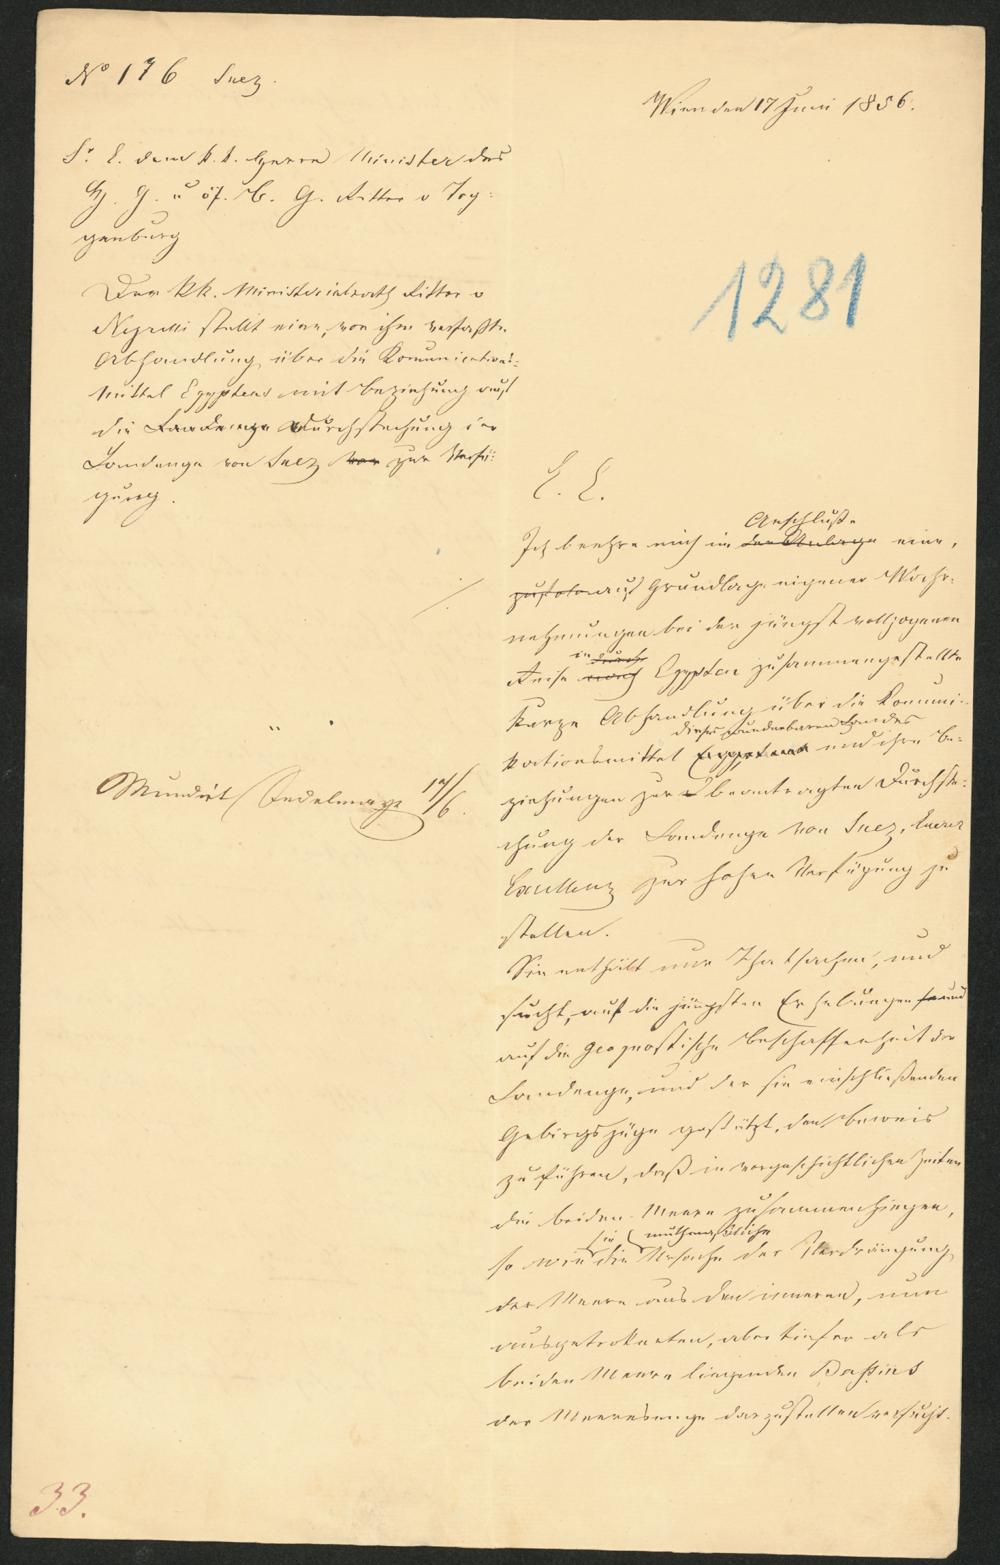 No 176 Suez.
Wien den 17 Juni 1856.
Sr. E. dem k. k. Herrn Minister des
H. G. u öf. B. G. Ritter v Tog-
genburg
Der kk. Ministerialrath Ritter v
Negrelli stellt eine, von ihm verfaßte
Abhandlung über die Komunications-
Mittel Egyptens mit Beziehung auf
die Landenge Durchstechung der
Landenge von Suez zur Verfü-
gung.
1281
E. E.
Anschluße
Ich beehre mich im der Anlage eine,
auf Grundlage eigener Wahr-
nehmungen bei der jüngst vollzogenen
in durch
Reise nach Egypten zusammengestellte
kurze Abhandlung über die Kommuni-
dieses wunderbaren Landes
kationsmittel Egyptens und ihre Be-
ziehungen zur beantragten Durchste-
chung der Landenge von Suez, Euerer
Excellenz zur hohen Verfügung zu
stellen.
Mundirt 17/6.
Sie enthält nur Thatsachen, und
sucht, auf die jüngsten Erhebungen und
auf die geognostische Beschaffenheit der
Landenge, und der sie einschließenden
Gebirgszüge gestützt, den Beweis
zu führen, daß in vorgeschichtlichen Zeiten
die beiden Meere zusammenhingen,
sie muthmaßliche
so wie die Ursache der Verdrängung
der Meere aus den inneren, nun
ausgetrokneten, aber tiefer als
beiden Meere liegenden Bassins
der Meeresenge darzustellen versucht.
33.